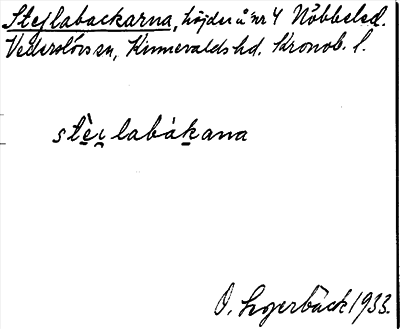 Stejlabackarna, höjder å nr 4 Nöbbeled.
Vederslövs sn, Kinnevalds hd. Kronob. l.
stèi̯labákana
O. Lagerbäck 1933.